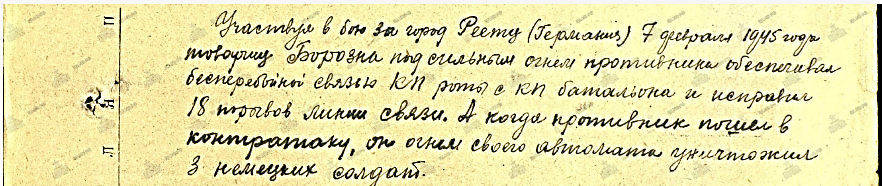 Участвуя в бою за город Реетц (Германия) 7 февраля 1945 года
товарищ Борозна под сильным огнем противника обеспечивал
бесперебойной связью КП роты с КП батальона и исправил
18 порывов линии связи. А когда противник пошел в
контратаку, он огнем своего автомата уничтожил
3 немецких солдат.